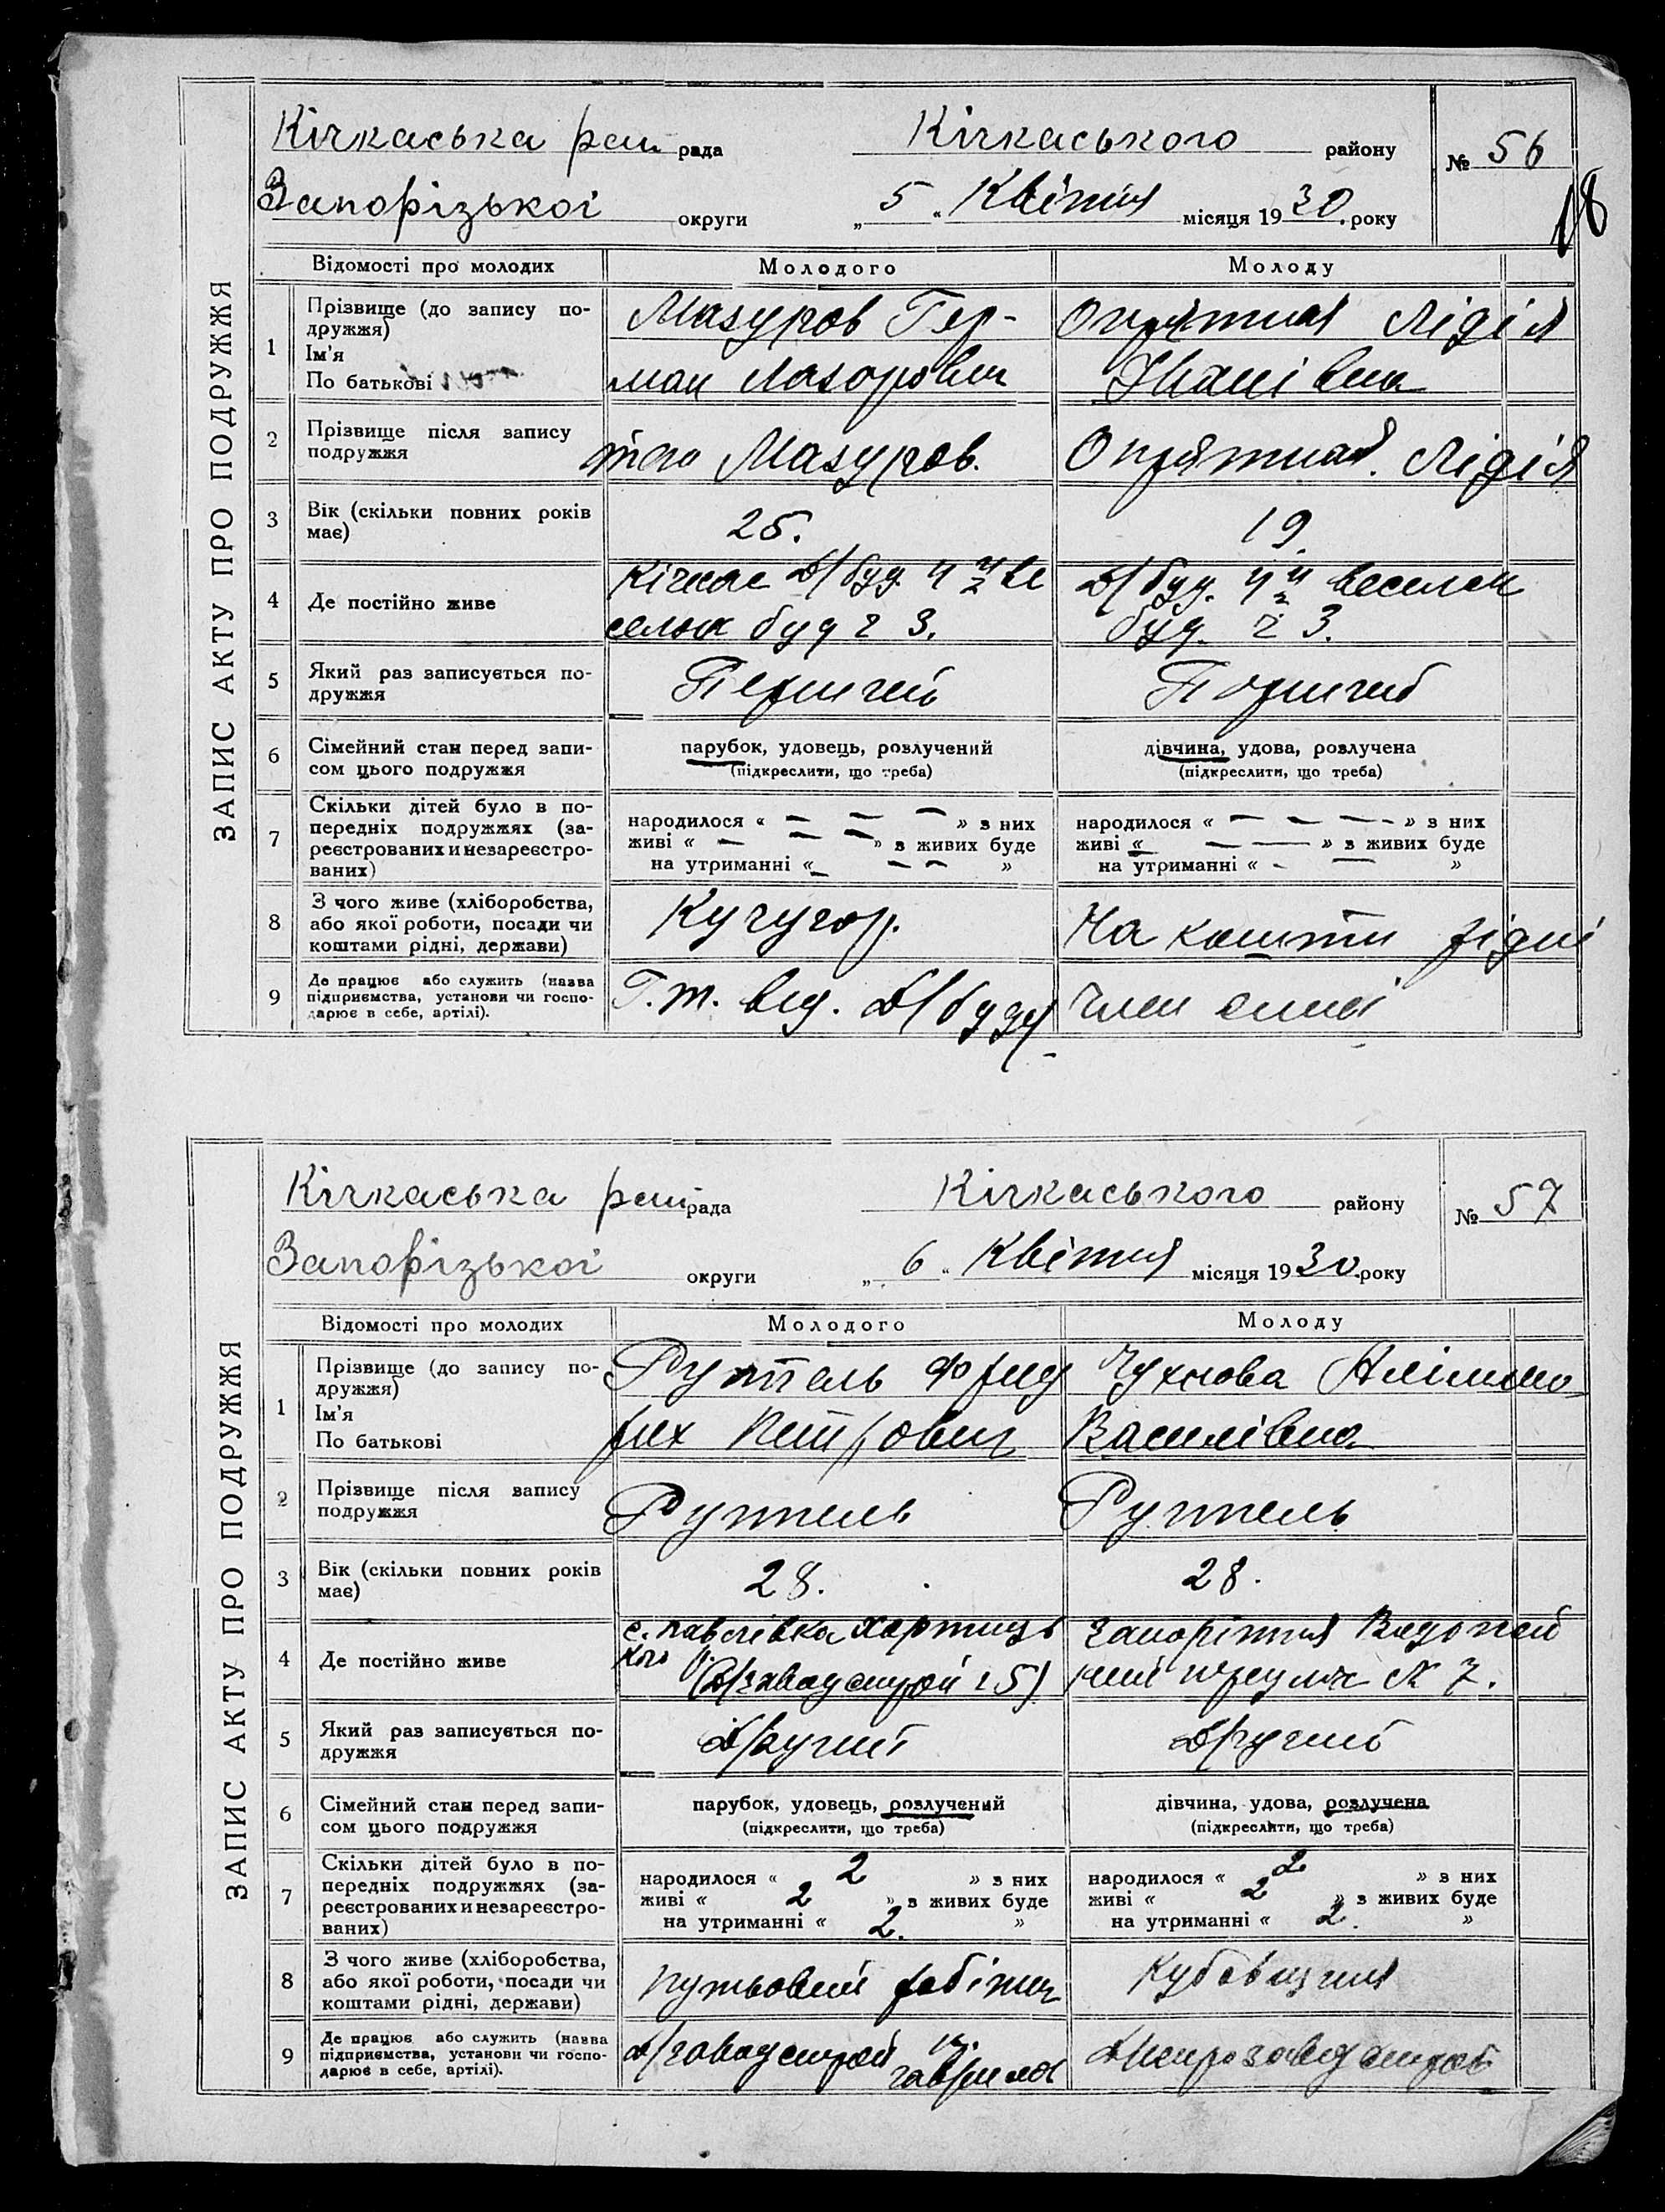 ЗАПИС АКТУ ПРО ПОДРУЖЖЯ
Кічкаська рай рада Кічкаського району № 56
18
Запорізької округи „ 5 “ Квітня місяця 1930 року
Відомості про молодих Молодого Молоду
1 Прізвище (до запису по-
дружжя)
Ім'я
По батькові
Мазуров Гер-
ман Лазорович
Опрятная Лідія
Іванівна
2 Прізвище після запису
подружжя
Мазуров.
Опрятная. Лідія
3 Вік (скільки повних років
має)
25.
19.
4 Де постійно живе
Кічкас Д/буд. Ве
селок буд ч 3.
Д/буд. Веселок
буд. ч 3.
5 Який раз записується по-
дружжя
Перший
Перший
6 Сімейний стан перед запи-
сом цього подружжя
парубок, удовець, розлучений
(підкреслити, що треба)
дівчина, удова, розлучена
(підкреслити, що треба)
7 Скільки дітей було в по-
передніх подружжях (за-
реєстрованих и незареєстро-
ваних)
народилося « — — — » з них
живі « — — — » з живих буде
на утриманні « — — — »
народилося « — — — » з них
живі « — — » з живих буде
на утриманні « - — »
8 З чого живе (хліборобства,
або якої роботи, посади чи
коштами рідні, держави)
Кучугор.
На кошти рідні
9 Де працює або служить (назва
підприємства, установи чи госпо-
дарює в себе, артілі).
Г.т. від. Д/буду
член
ЗАПИС АКТУ ПРО ПОДРУЖЖЯ
Кічкаська рай рада Кічкаського району № 57
Запорізької округи „ 6 “ Квітня місяця 1930 року
Відомості про молодих Молодого Молоду
1 Прізвище (до запису по-
дружжя)
Ім'я
По батькові
Руттель Фрид
рих Петрович
Чухнова
Василівна
2 Прізвище після запису
подружжя
Руттель
Руттель
3 Вік (скільки повних років
має)
28.
28.
4 Де постійно живе
с. Павлівка Хортицьь
кого р. (Д/заводстрой ч 5)
Запоріжжя Водопой
ний № 7.
5 Який раз записується по-
дружжя
Другий
Другий
6 Сімейний стан перед запи-
сом цього подружжя
парубок, удовець, розлучений
(підкреслити, що треба)
дівчина, удова, розлучена
(підкреслити, що треба)
7 Скільки дітей було в по-
передніх подружжях (за-
реєстрованих и незареєстро-
ваних)
народилося « 2 » з них
живі « 2 » з живих буде
на утриманні « 2. »
народилося « 2 » з них
живі « 2 » з живих буде
на утриманні « 2. »
8 З чого живе (хліборобства,
або якої роботи, посади чи
коштами рідні, держави)
путьовий робітник
Кубовщиця
9 Де працює або служить (назва
підприємства, установи чи госпо-
дарює в себе, артілі).
Д/заводстрой
Днепрозаводстрой